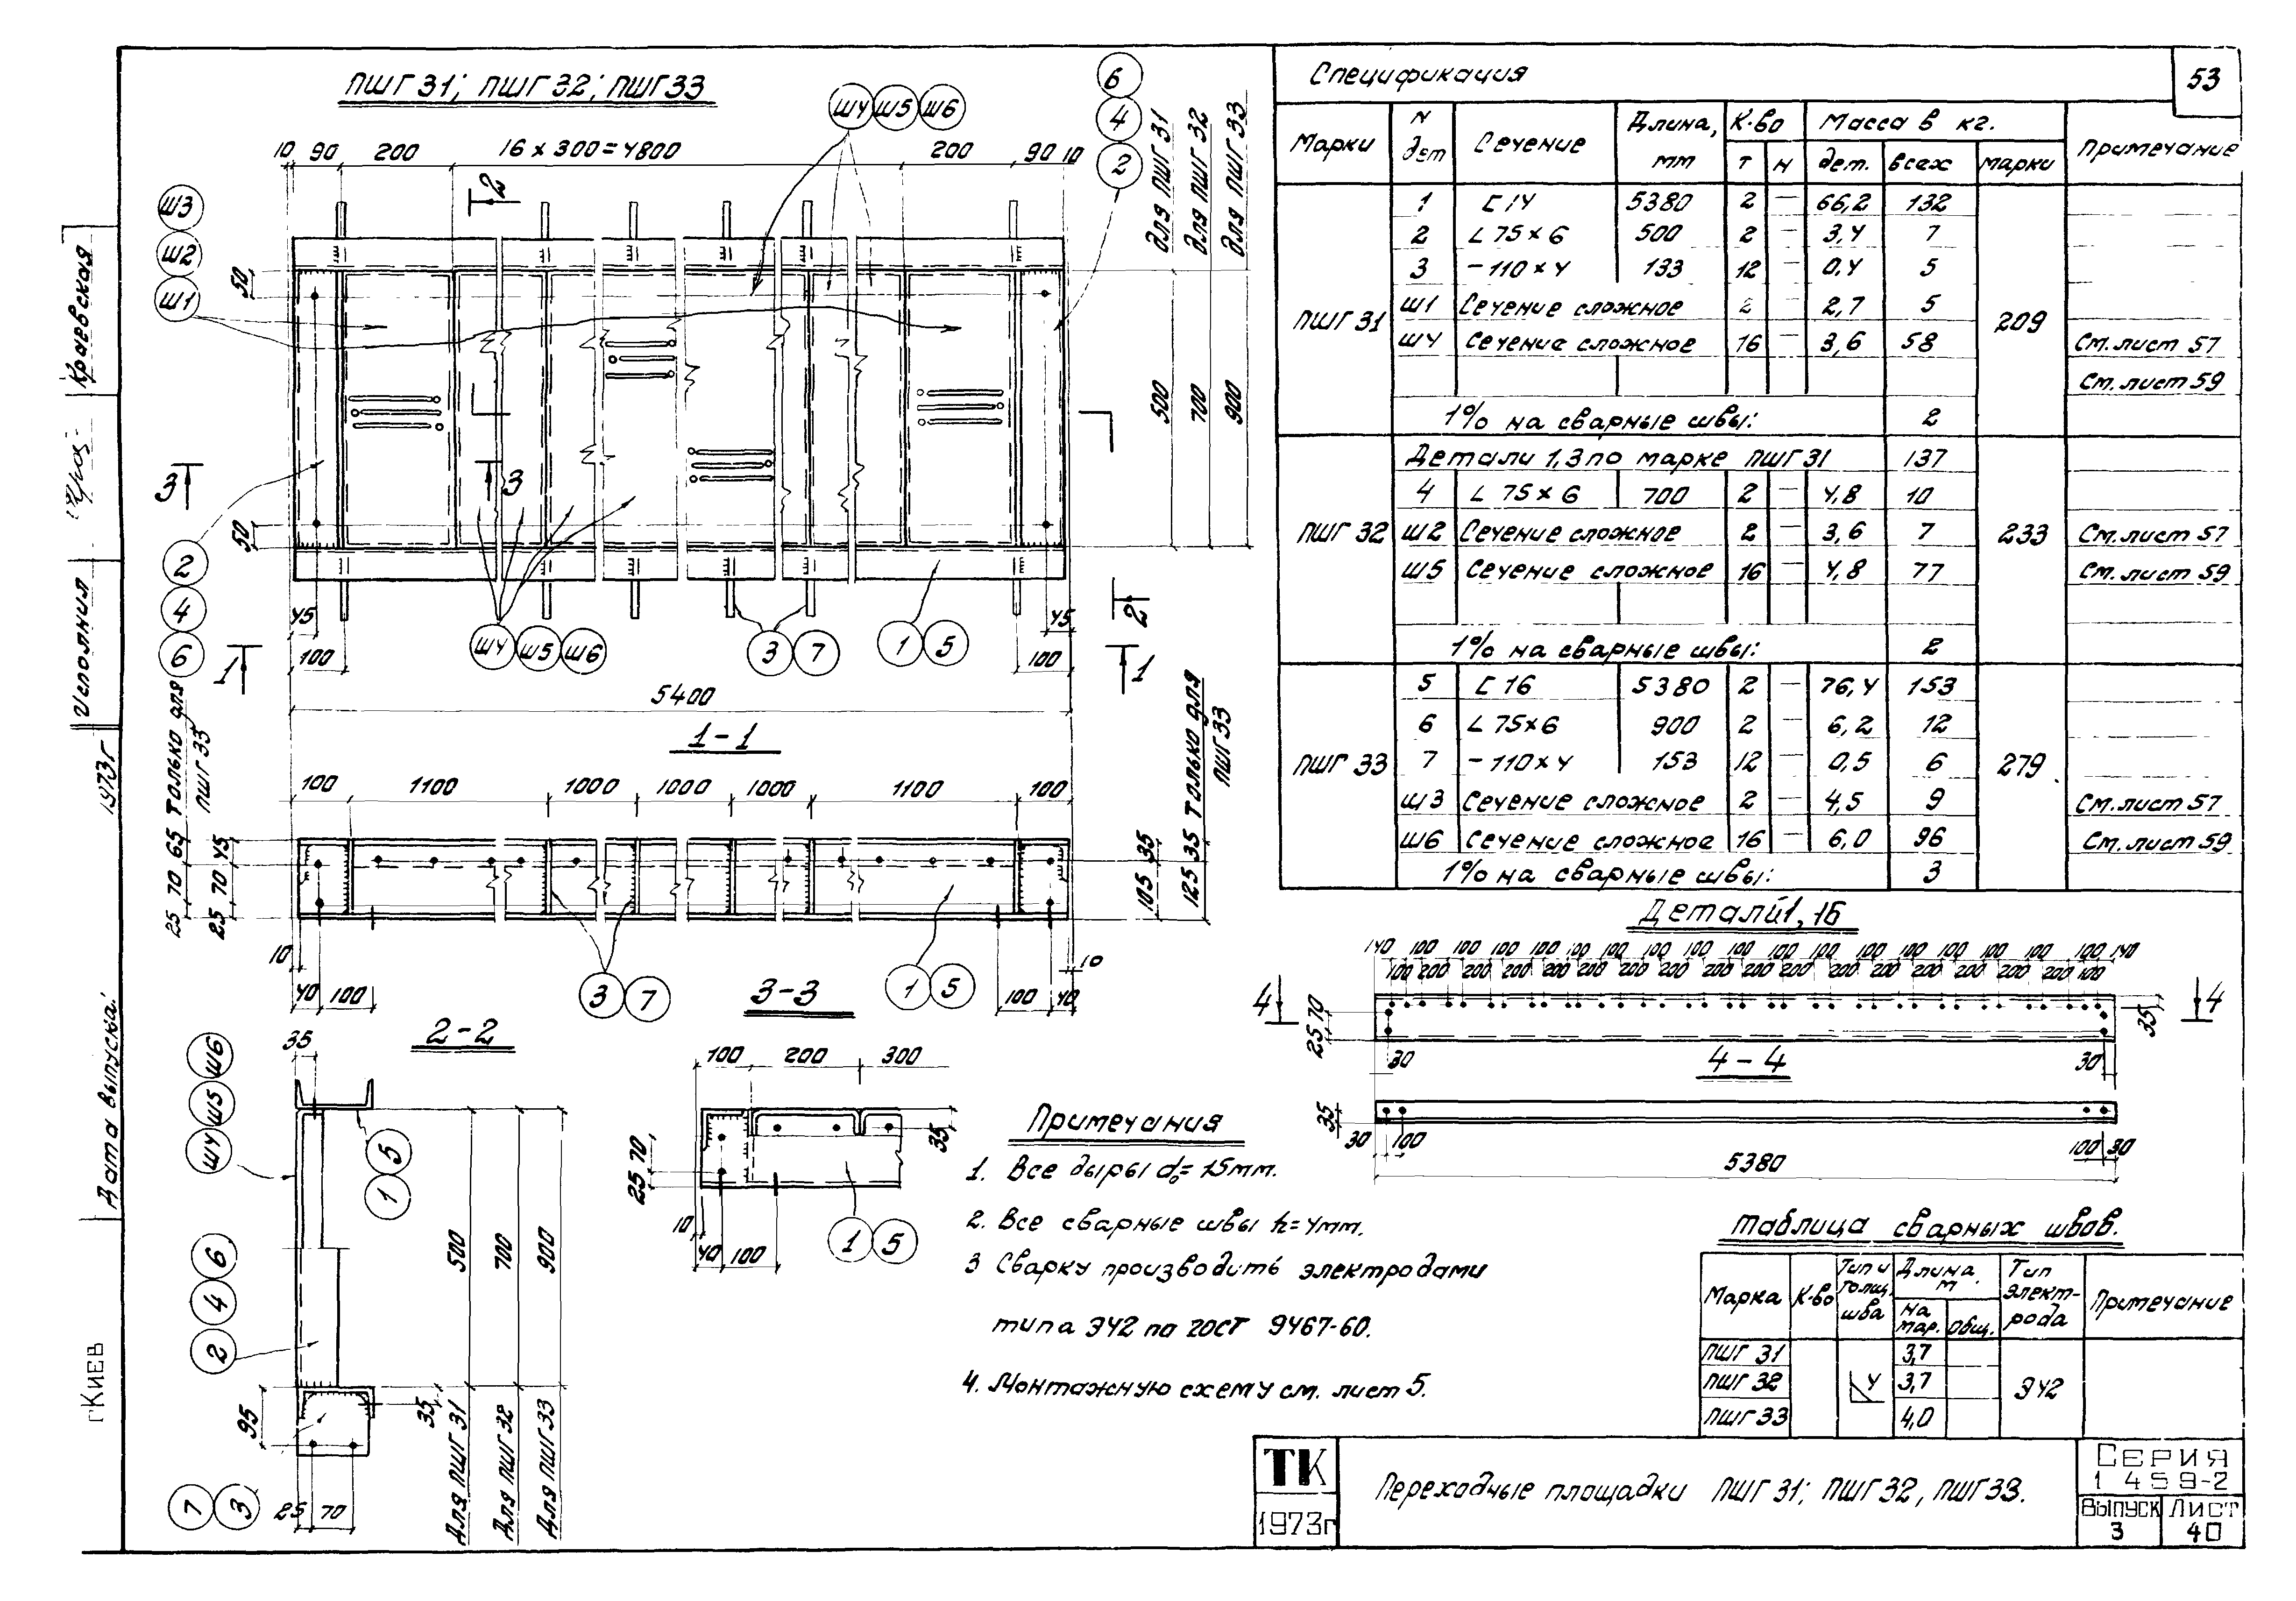 ПШГ31; ПШГ32; ПШГ33
10 90 200 16 x 300 = 4800 200 90 10
Ш4 Ш5 Ш6
6
4
2
для ПШГ 31
для ПШГ 32
для ПШГ 33
Ш3
Ш2
Ш1
2
50
500
700
900
3
3
50
2
4
6
45
100
1
Ш4 Ш5 Ш6
3 7
1 5
2
45
100
1
5400
1-1
100 1100 1000 1000 1000 1100 100
25 70 65 только для ПШГ 33
25 70 45
105 35
125 35 только для ПШГ 33
10
40 100
3 7
1 5
100 40
10
2-2
35
Ш4 Ш5 Ш6
1 5
2 4 6
500
700
900
95
35
Для ПШГ 31
Для ПШГ 32
Для ПШГ 33
7 3
25 70
3-3
100 200 300
25 70
35
10
40 100
1 5
Примечания
1. Все дыры d₀= 15мм.
2. Все сварные швы h=4мм.
3 Сварку производить электродами
типа Э42 по ГОСТ 9467-60.
4. Монтажную схему см. лист 5.
Спецификация
53
Марки N дет Сечение Длина, мм К-во Масса в кг. Примечание
т н дет. всех марки
ПШГ 31
1 [ 14 5380 2 — 66,2 132
2 L 75 x 6 500 2 — 3,4 7
3 - 110 x 4 133 12 — 0,4 5
Ш1 Сечение сложное 2 — 2,7 5
209
Ш4 Сечение сложное 16 — 3,6 58 См. лист 57
См. лист 59
1% на сварные швы: 2
Детали 1,3 по марке ПШГ 31 137
4 L 75 x 6 700 2 — 4,8 10
ПШГ 32 Ш2 Сечение сложное 2 — 3,6 7 233 См. лист 57
Ш5 Сечение сложное 16 — 4,8 77 См. лист 59
1% на сварные швы: 2
5 [ 16 5380 2 — 76,4 153
6 L 75x6 900 2 — 6,2 12
ПШГ 33 7 - 110 x 4 153 12 — 0,5 6 279
Ш3 Сечение сложное 2 — 4,5 9 См. лист 57
Ш6 Сечение сложное 16 — 6,0 96 См. лист 59
1% на сварные швы: 3
140 100 100 100 100 100 100 100 100 100 100 100 100 100 100 100 100 100 140
100 200 200 200 200 200 200 200 200 200 200 200 200 200 200 200 200 100
4 4
25 70
35
30 30
4-4
35
30 100
100 30
5380
Таблица сварных швов.
Марка К-во Тип и толщ. шва Длина м Тип электрода Примечание
на мар. общ.
ПШГ 31 3,7
ПШГ 32 4 3,7 Э42
ПШГ 33 4,0
ТК
1973г
Переходные площадки ПШГ 31; ПШГ 32, ПШГ 33.
Серия
1 459-2
Выпуск
3
Лист
40
Краевская
Исполнил
1973г
Дата выпуска:
г Киев